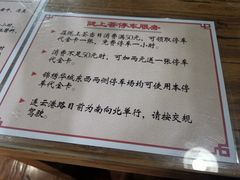 陇上荟停车服务
在陇上荟香消费满50元，可领取停车
代金卡一张，免费停车一小时。
消费不足50元时，可加两元送一张停车
代金卡。
锦绣华城东西两侧停车场均可使用本停
车代金卡。
连云港路目前为南向北单行，请按交规
驾驶。